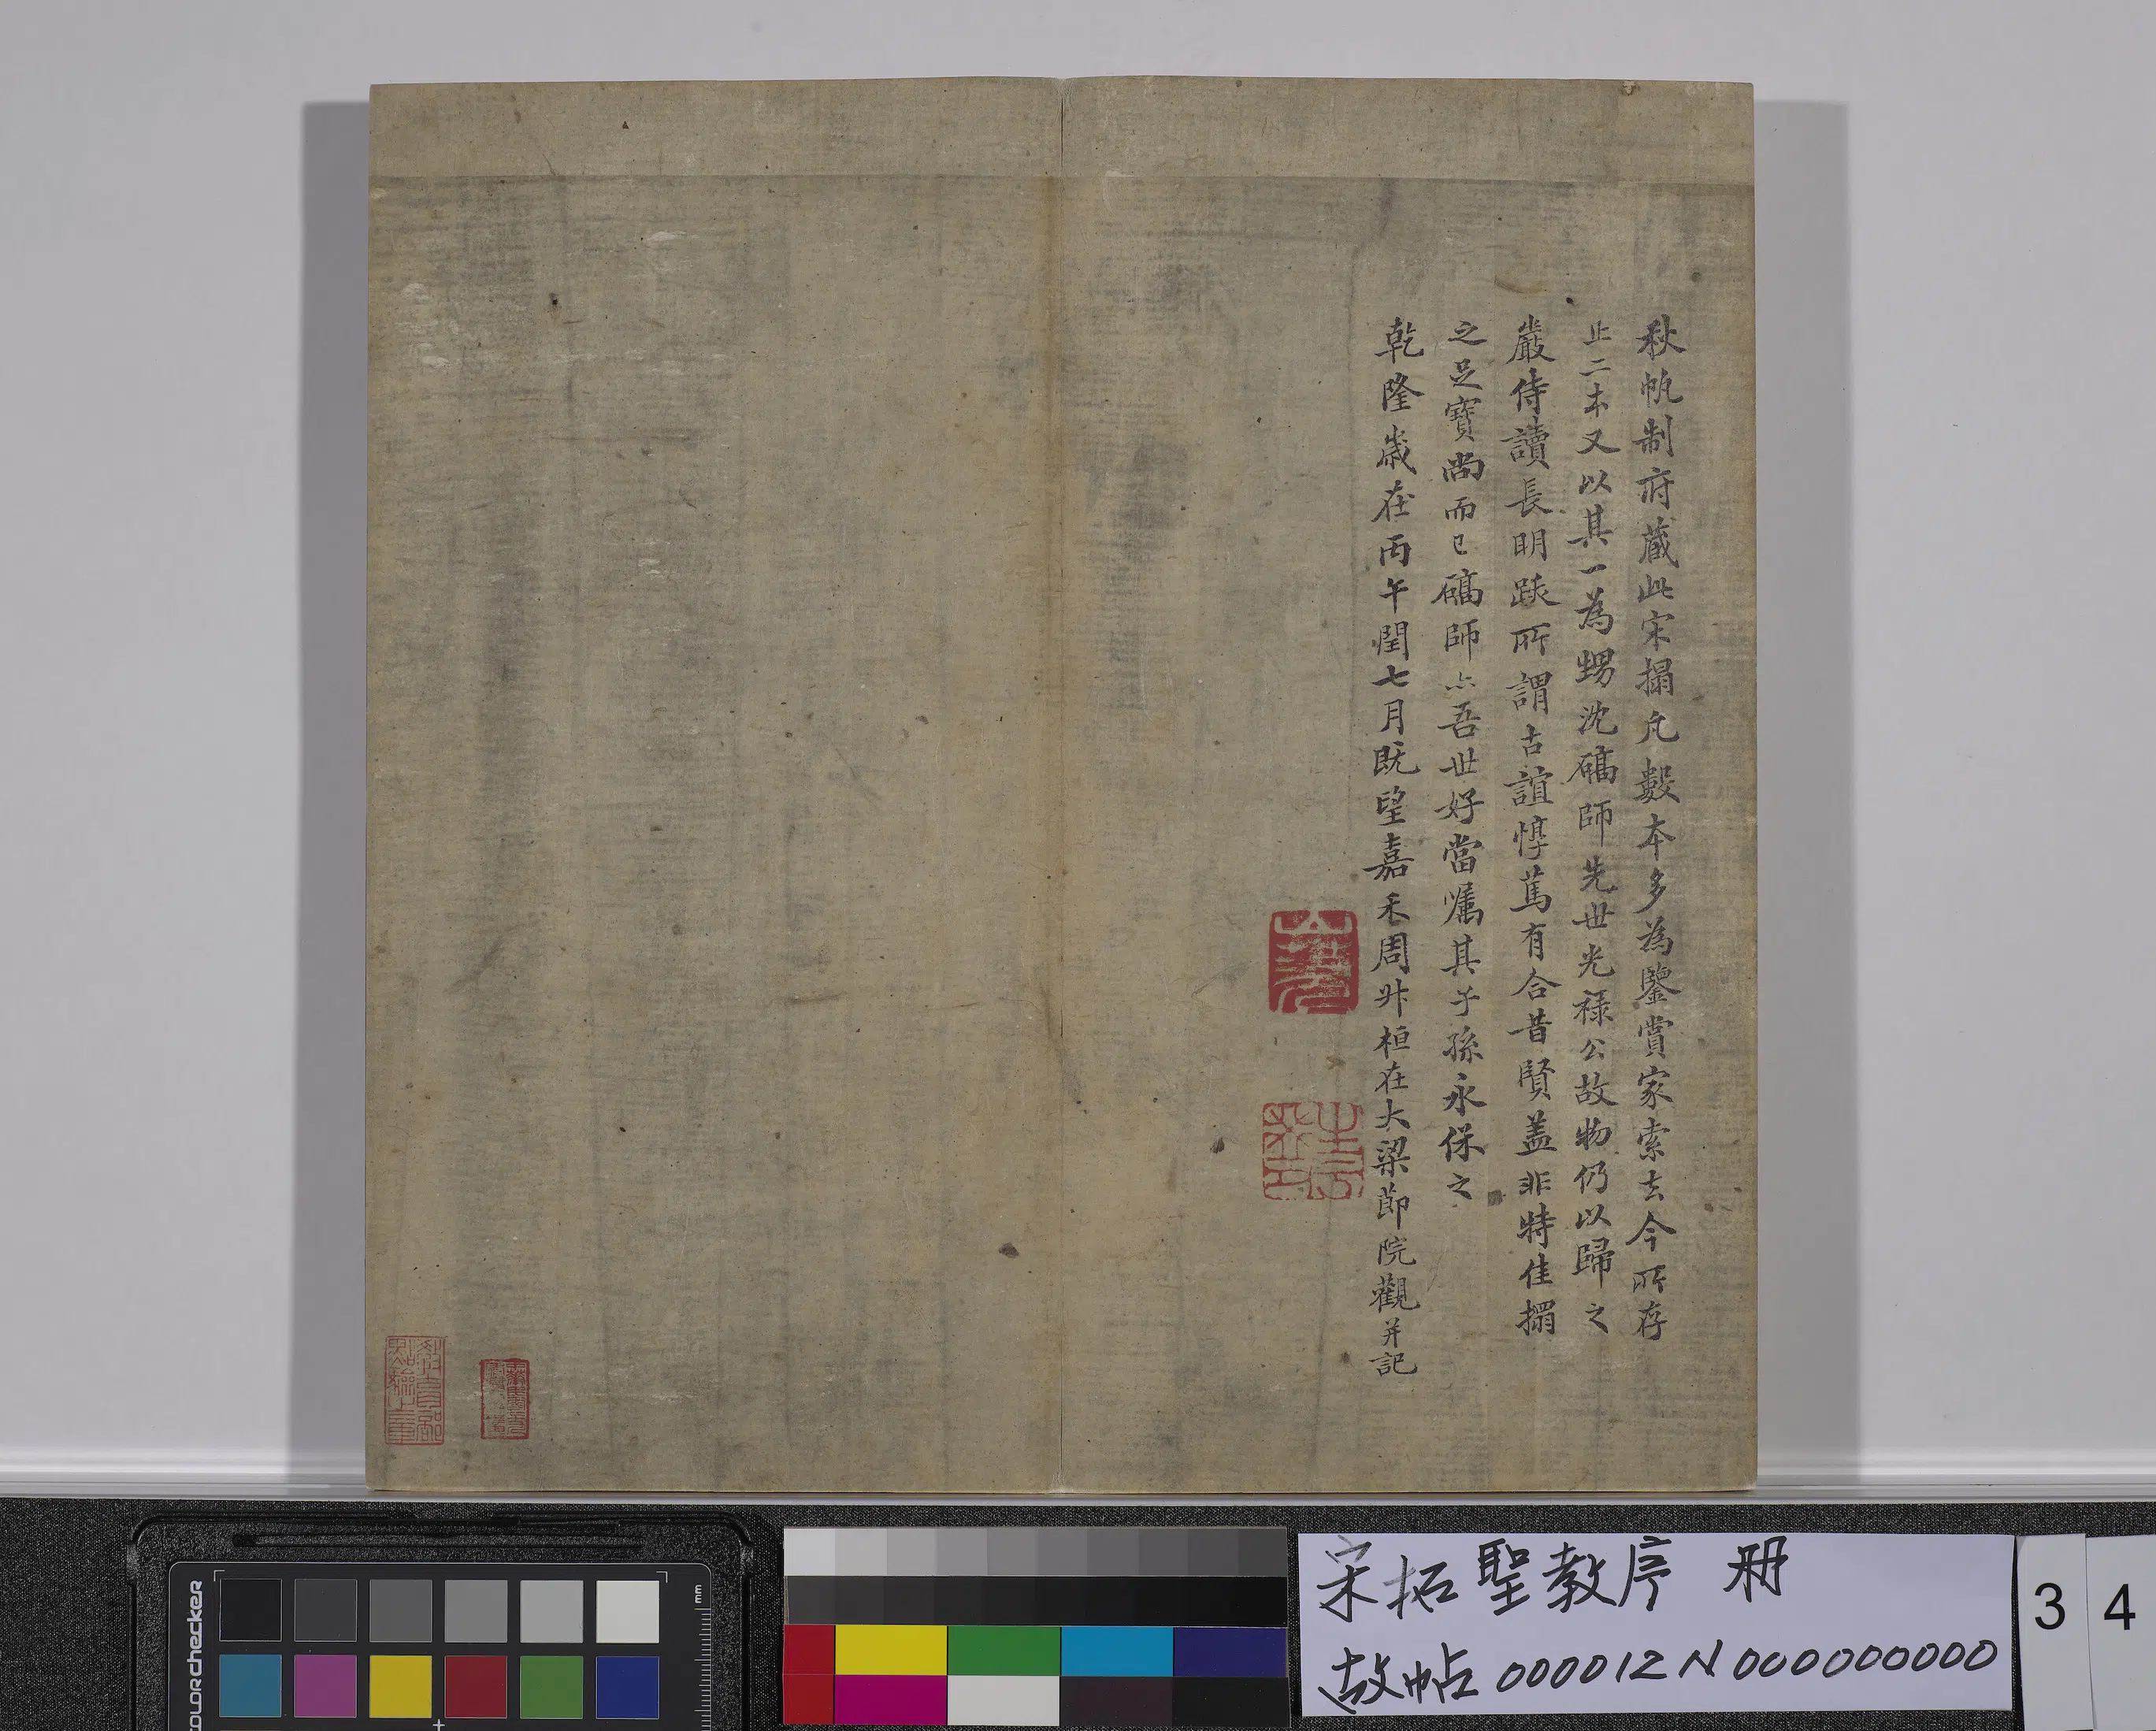 秋帆制府藏此宋搨凡數本多為鑒賞家索去今所存
止二本又以其一為甥沈礄師先世光禄公故物仍以歸之
嚴侍讀長明跋所謂古誼惇篤有合昔賢蓋非特佳搨
之足寶尚而已礄師亦吾世好當嘱其子孫永保之
乾隆歲在丙午閏七月既望嘉禾周升桓在大梁節院觀并記
宋拓聖教序 冊
故帖000012N000000000
34
colorchecker